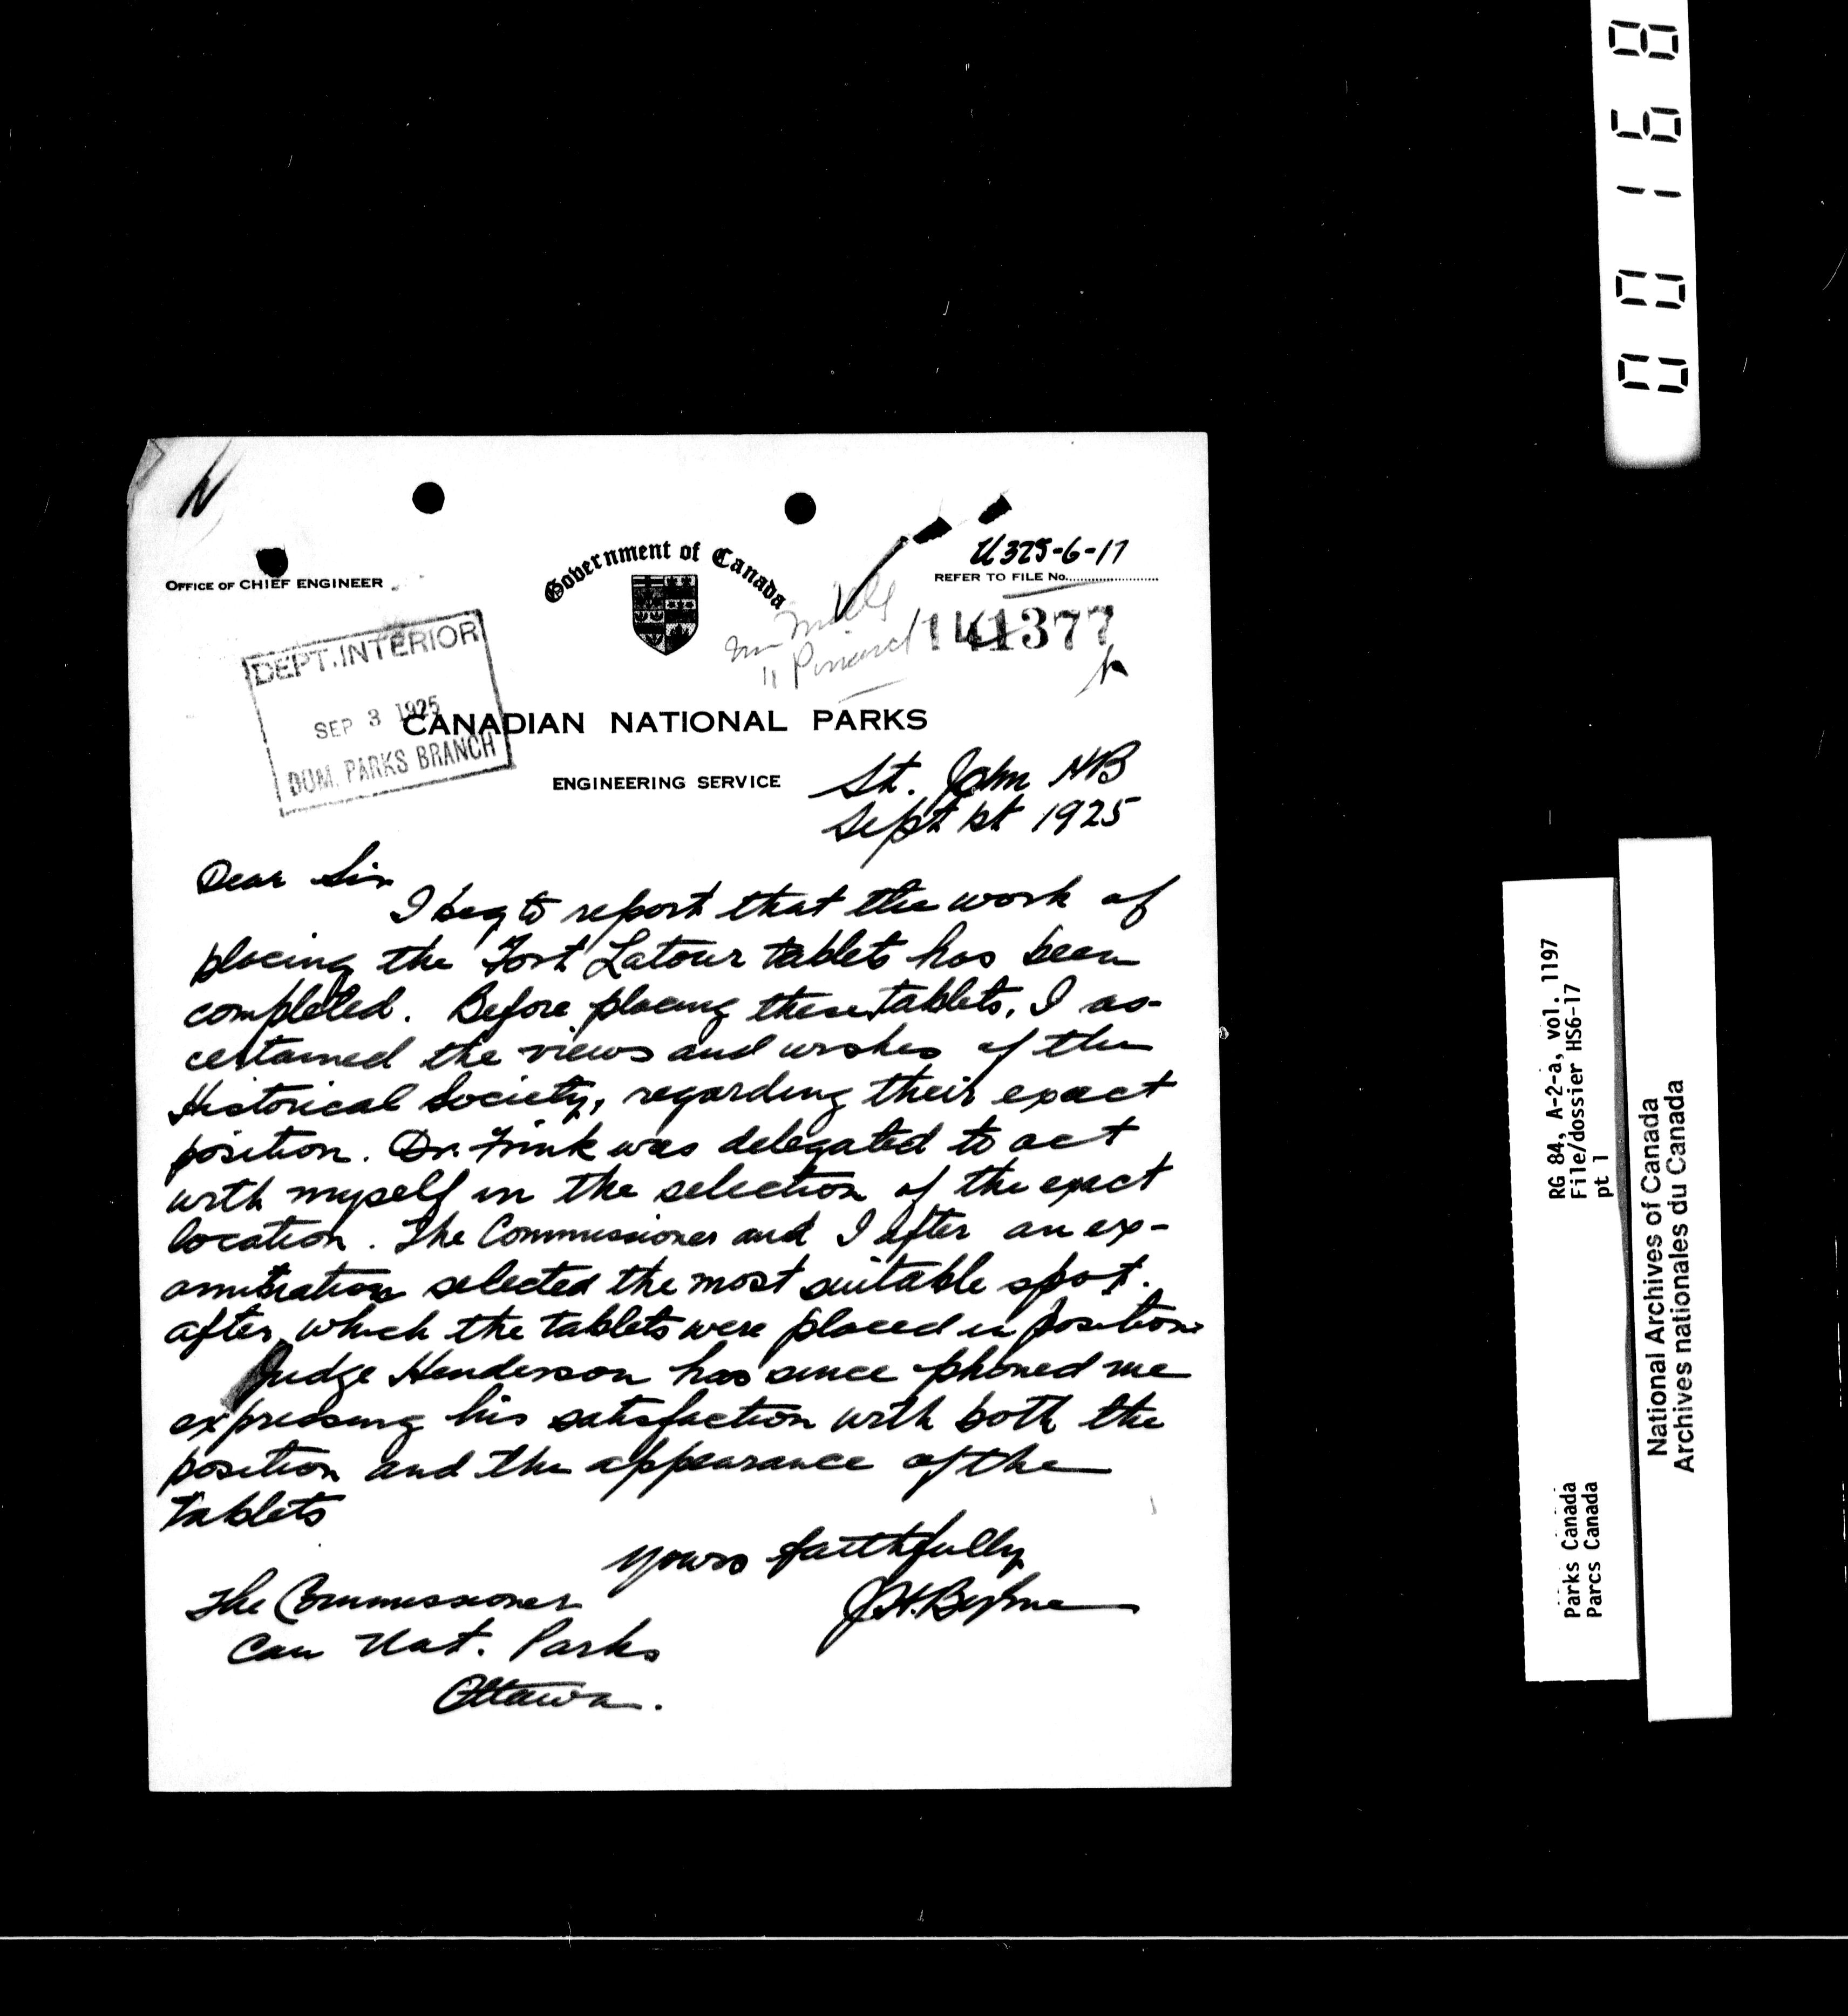 N
Government of Canada
OFFICE OF CHIEF ENGINEER
U325-6-17
REFER TO FILE No.
141377
DEPT. INTERIOR
SEP 3 1925
DOM. PARKS BRANCH
CANADIAN NATIONAL PARKS
ENGINEERING SERVICE
St. John NB
Sept 1st 1925
Dear Sir
I beg to report that the work of
placing the Fort Latour tablets has been
completed. Before placing these tablets, I as-
certained the views and wishes of the
Historical Society, regarding their exact
position. Dr. Frink was delegated to act
with myself in the selection of the exact
location. The Commissioner and I after an ex-
amination selected the most suitable spot.
after which the tablets were placed in position.
Judge Henderson has since phoned me
expressing his satisfaction with both the
position and the appearance of the
tablets
Yours faithfully
J.H. Byrne
The Commissioner
Can Nat. Parks
Ottawa.
00168
RG 84, A-2-a, vol. 1197
File/dossier HS6-17
pt 1
Parks Canada
Parcs Canada
National Archives of Canada
Archives nationales du Canada